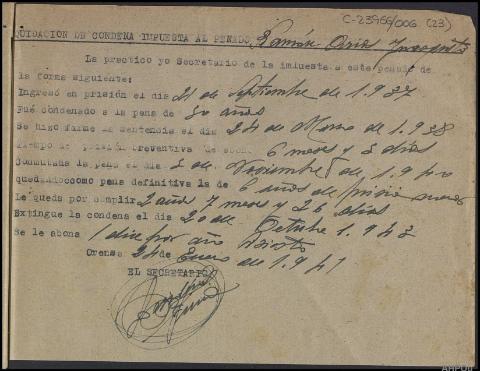 C-23966/006 (23)
QUIDACION DE CONDENA IMPUESTA AL PENADO Ramón Arias
La practico yo Secretario de la impuesta a este penado de
la forma siguiente:
Ingresó en prisión el día 21 de Septiembre de 1.937
Fué condenado a la pena de 30 años
Se hizo firme la sentencia el día 24 de de 1.938
tiempo de prisión preventiva de abono 6 meses y 3 días
Conmutada la pena el día 2 de Noviembre de 1.940
quedando como pena definitiva la de 6 años de prisión menor
Le queda por cumplir 2 años 7 meses y 26 días
Extingue la condena el día 20 de Octubre 1.943
Se le abona 1 día por año
Orense 24 de Enero de 1.941
EL SECRETARIO
AHPOu